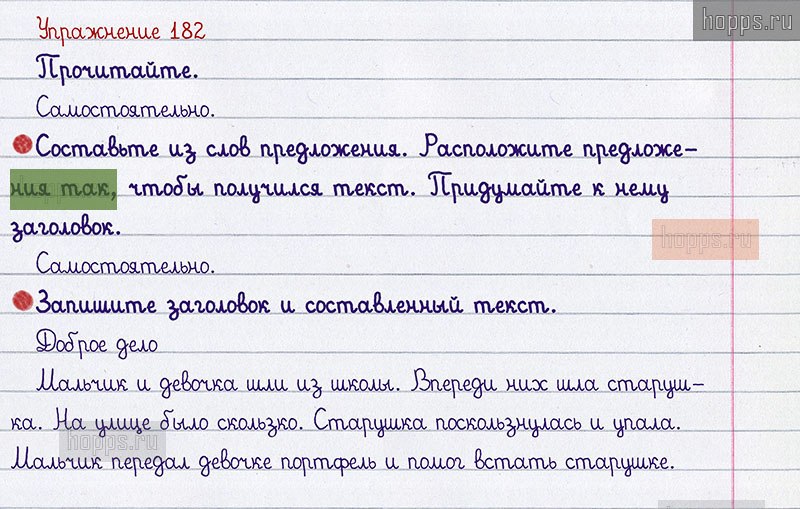 hopps.ru
Упражнение 182
Прочитайте.
Самостоятельно.
Составьте из слов предложения. Расположите предложе-
ния так, чтобы получился текст. Придумайте к нему
заголовок.
hopps.ru
Самостоятельно.
Запишите заголовок и составленный текст.
Доброе дело
Мальчик и девочка шли из школы. Впереди них шла старуш-
ка. На улице было скользко. Старушка поскользнулась и упала.
hopps.ru
Мальчик передал девочке портфель и помог встать старушке.